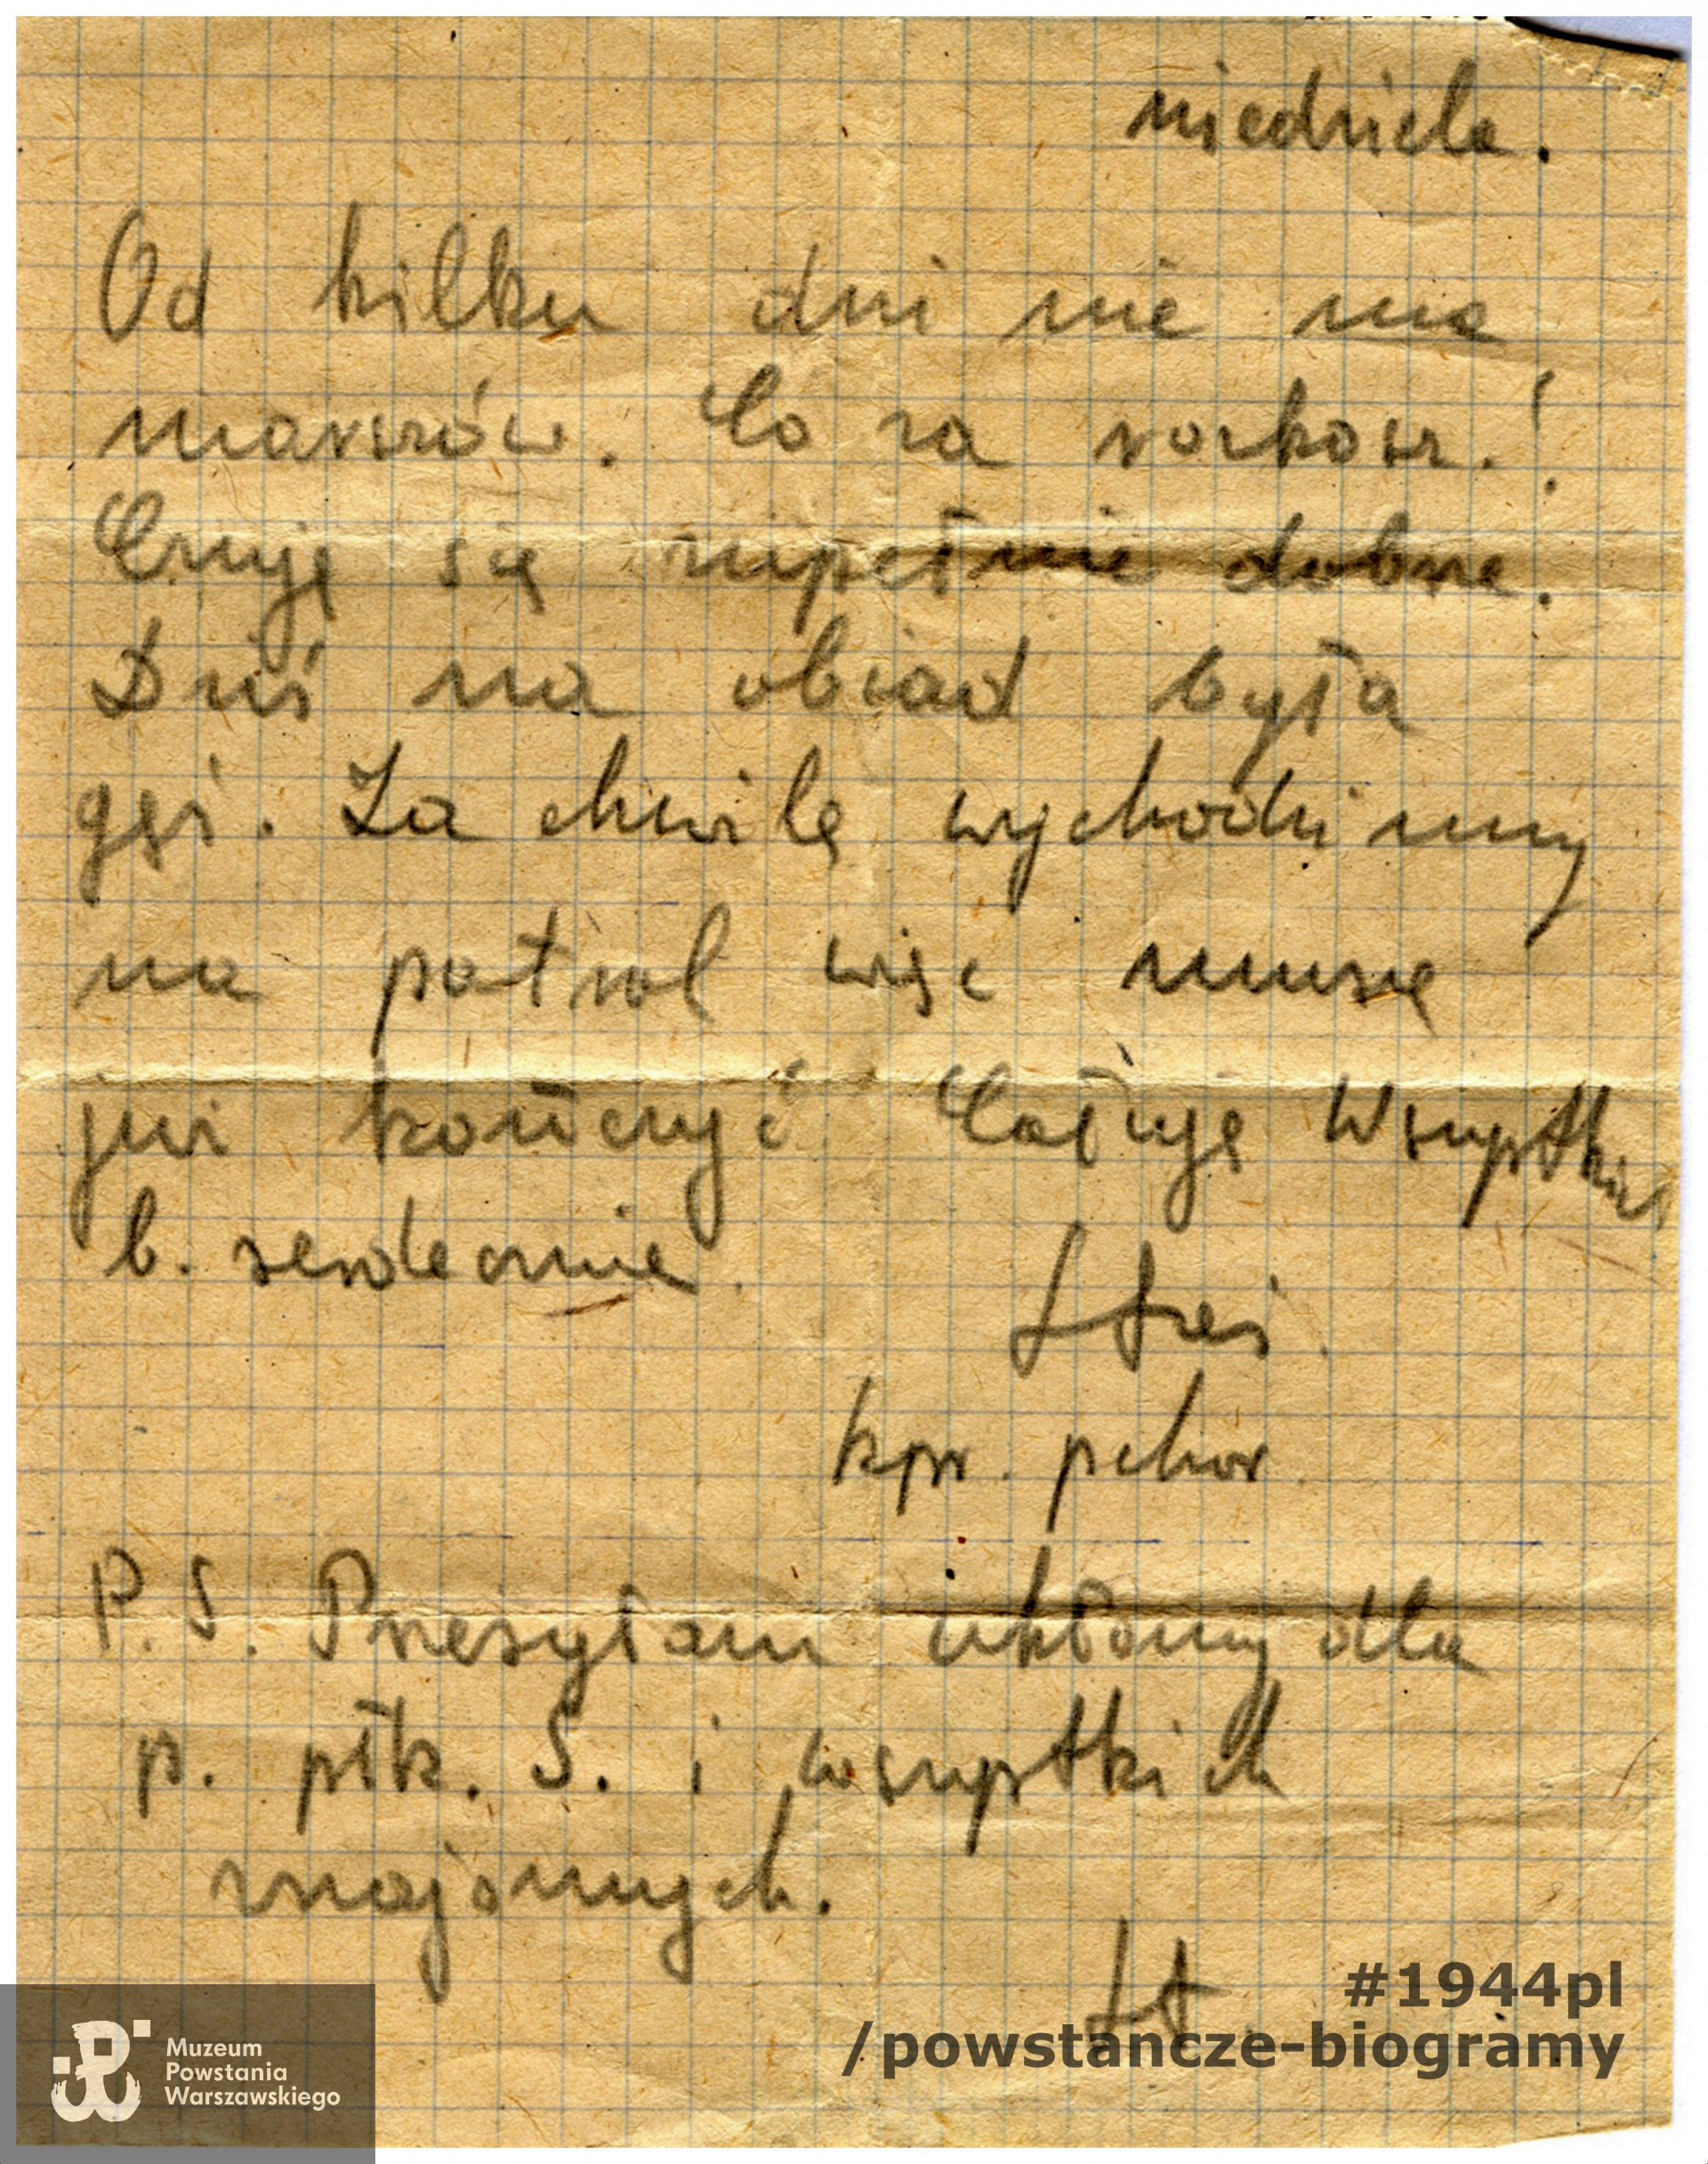 niedziela.
Od kilku dni nie ma
marszów. Co za rozkosz.!
Czuję się zupełnie dobrze.
Dziś na obiad była
gęś. Za chwilę wychodzimy
na patrol więc muszę
już kończyć Całuję Wszystkich
b. serdecznie.
Staś.
kpr. pchor.
P.S. Przesyłam ukłony dla
p. płk. S. i wszystkich
znajomych.
St.
#1944pl
/powstancze-biogramy
Muzeum
Powstania
Warszawskiego